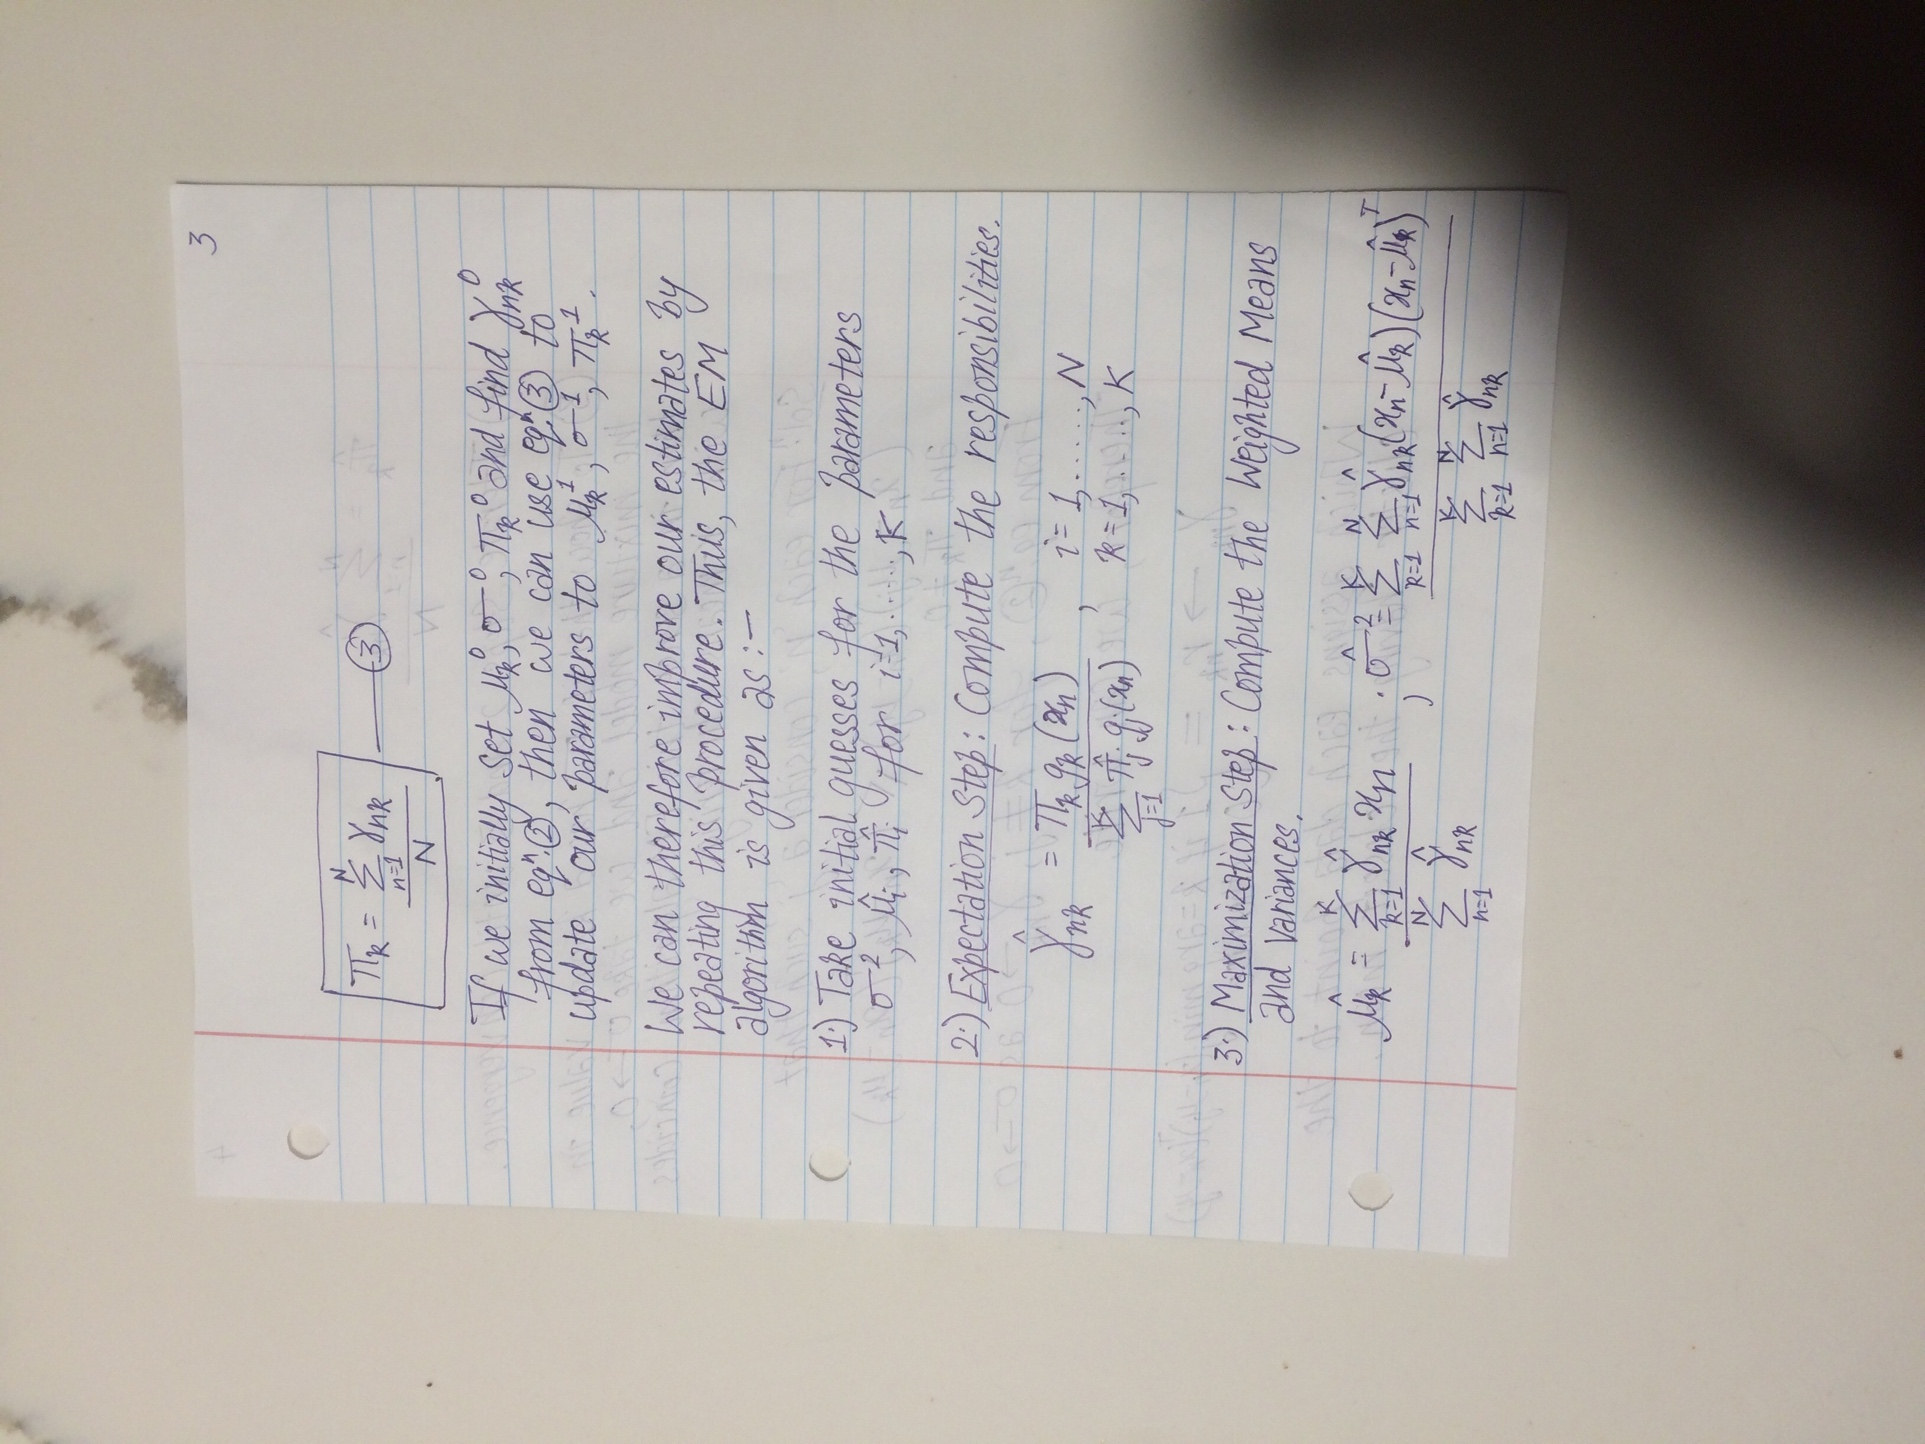 3
π_k = Σ_{n=1}^{N} γ_nk / N — ③
If we initially set μ_k^0, σ^0, π_k^0 and find γ_nk^0
from eqn.②, then we can use eqn.③ to
update our parameters to μ_k^1, σ^1, π_k^1.
We can therefore improve our estimates by
repeating this procedure. This, the EM
algorithm is given as:-
1.) Take initial guesses for the parameters
σ^2, μ̂_i, π̂_i for i=1,.....,K
2.) Expectation Step: Compute the responsibilities.
γ̂_nk = π_k g_k(x_n) / Σ_{j=1}^{K} π̂_j g_j(x_n) , i = 1,......,N
k = 1,......,K
3.) Maximization Step: Compute the Weighted Means
and variances.
μ̂_k = Σ_{k=1}^{K} γ̂_nk x_n / Σ_{n=1}^{N} γ̂_nk , σ̂^2 = Σ_{k=1}^{K} Σ_{n=1}^{N} γ̂_nk (x_n - μ̂_k)(x_n - μ̂_k)^T / Σ_{k=1}^{K} Σ_{n=1}^{N} γ̂_nk